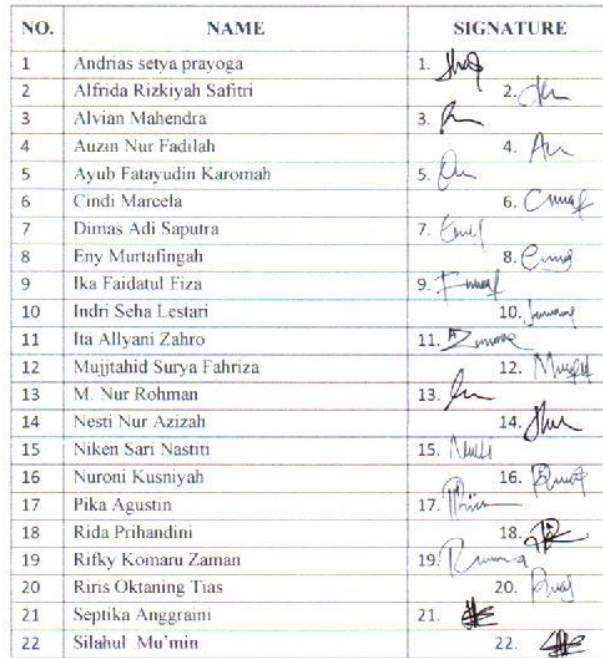 NO. NAME SIGNATURE
1 Andrias setya prayoga 1.
2 Alfrida Rizkiyah Safitri 2.
3 Alvian Mahendra 3.
4 Auzin Nur Fadilah 4.
5 Ayub Fatayudin Karomah 5.
6 Cindi Marcela 6.
7 Dimas Adi Saputra 7.
8 Eny Murtafingah 8.
9 Ika Faidatul Fiza 9.
10 Indri Seha Lestari 10.
11 Ita Allyani Zahro 11.
12 Mujjtahid Surya Fahriza 12.
13 M. Nur Rohman 13.
14 Nesti Nur Azizah 14.
15 Niken Sari Nastiti 15.
16 Nuroni Kusniyah 16.
17 Pika Agustin 17.
18 Rida Prihandini 18.
19 Rifky Komaru Zaman 19.
20 Riris Oktaning Tias 20.
21 Septika Anggraini 21.
22 Silahul Mu'min 22.